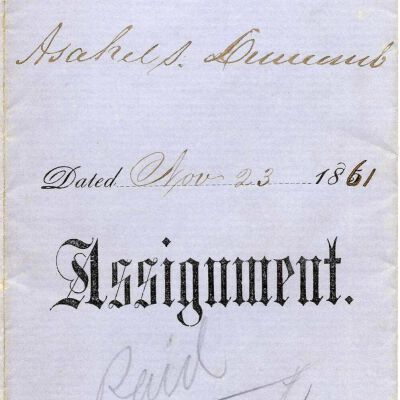 Asahel S. Dumond
Dated Nov 23 1861
Assignment.
Paid